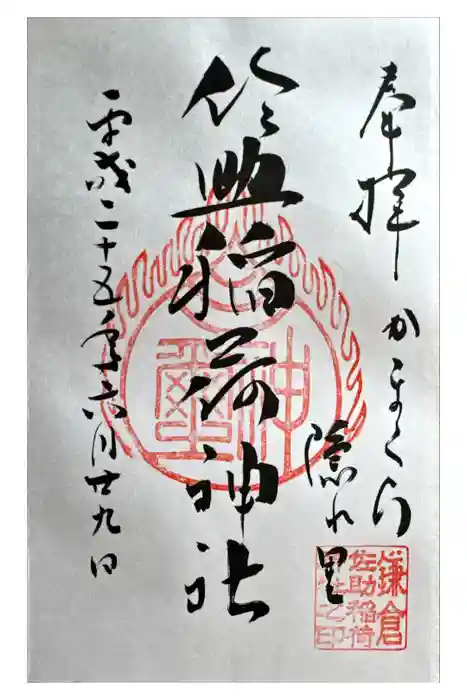 奉拝 かまくら
隠れ里
佐助稲荷神社
平成二十五年六月廿九日
神璽
鎌倉
佐助稲荷
社之印